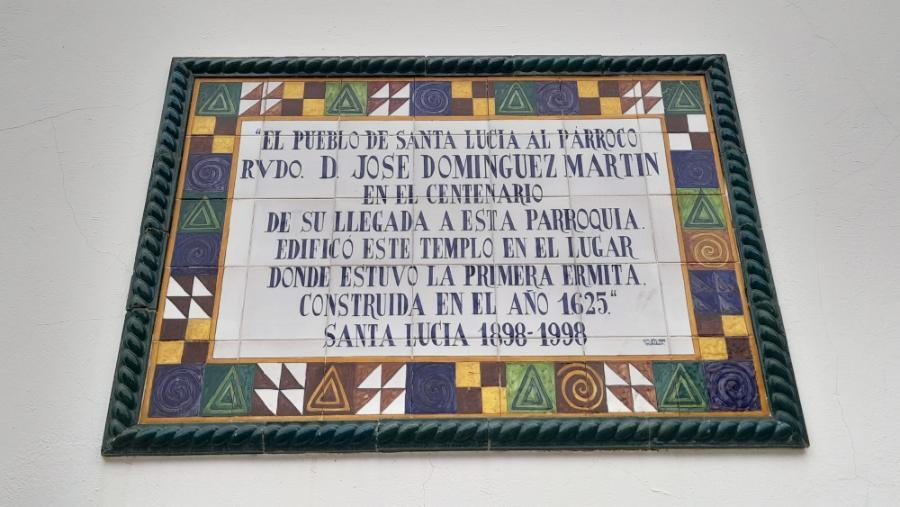 "EL PUEBLO DE SANTA LUCIA AL PÁRROCO
RVDO. D. JOSÉ DOMINGUEZ MARTIN
EN EL CENTENARIO
DE SU LLEGADA A ESTA PARROQUIA.
EDIFICÓ ESTE TEMPLO EN EL LUGAR
DONDE ESTUVO LA PRIMERA ERMITA.
CONSTRUIDA EN EL AÑO 1625."
SANTA LUCIA 1898-1998